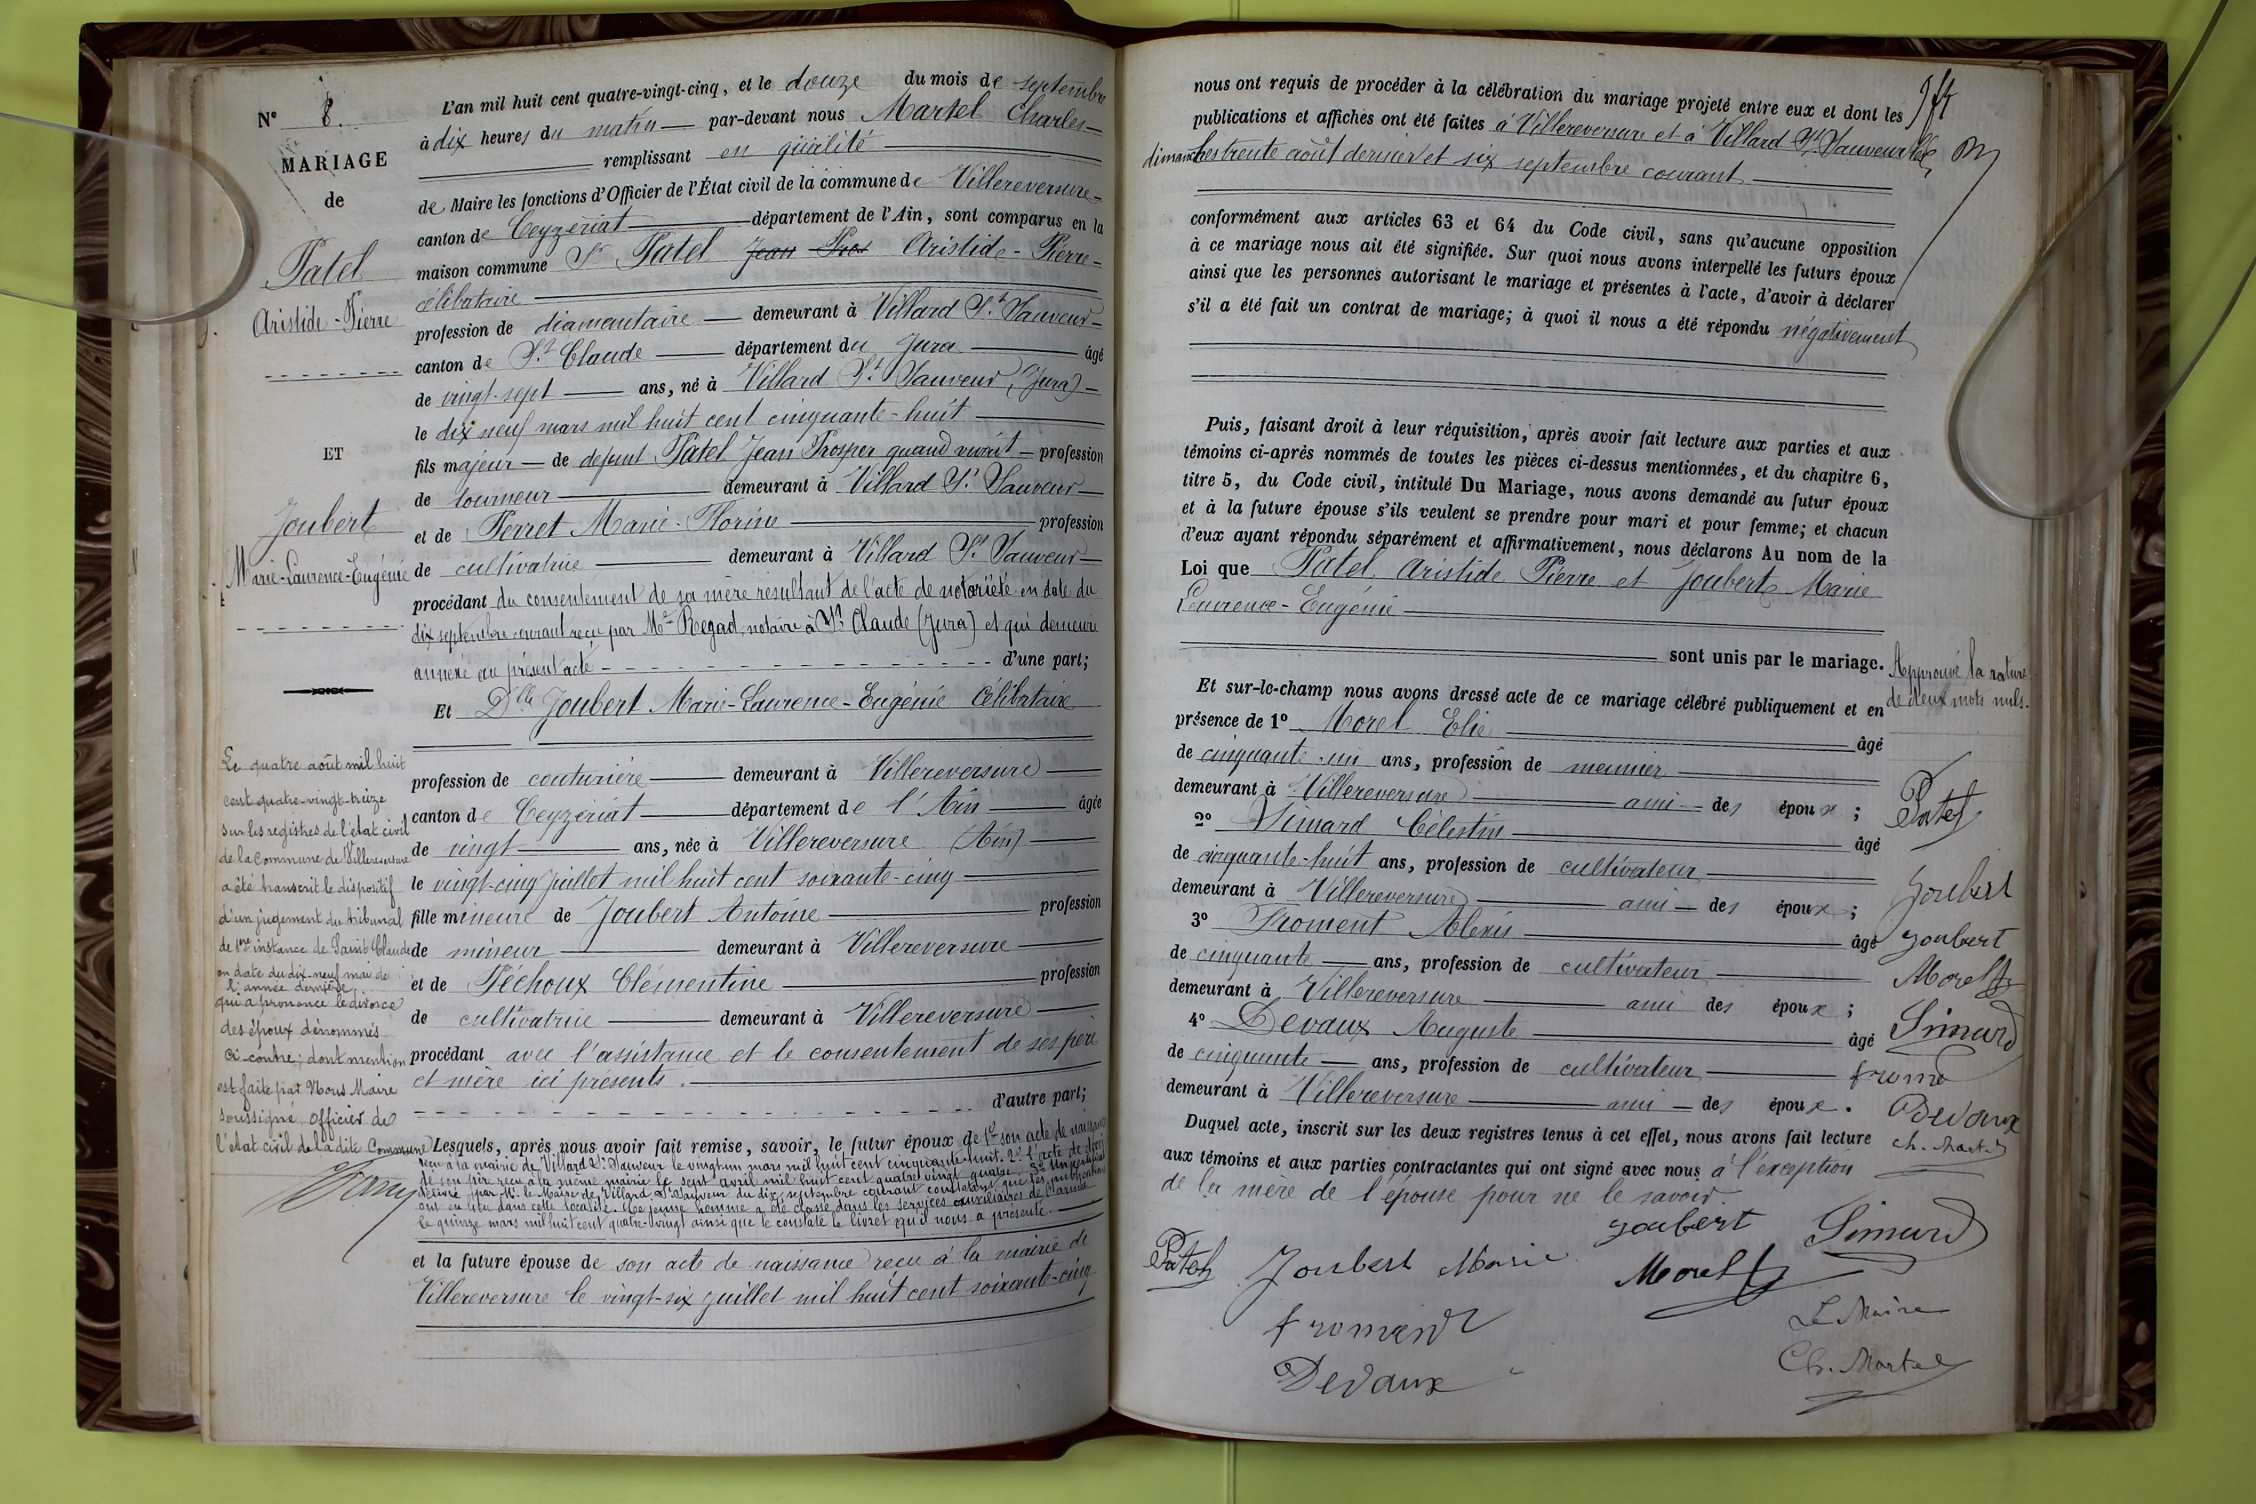 N° 8.
MARIAGE
de
Patel
Aristide-Pierre
ET
Joubert
Marie-Laurence-Eugénie
Le quatre août mil huit
cent quatre-vingt-treize
sur les registres de l'état civil
de la Commune de Villereversure
a été transcrit le dispositif
d'un jugement du tribunal
de 1ère instance de Saint-Claude
en date du dix-neuf mai de
l'année dernière
qui a prononcé le divorce
des époux dénommés
ci-contre; dont mention
est faite par Nous Maire
soussigné, officier de
l'état civil de la dite Commune
L'an mil huit cent quatre-vingt-cinq, et le douze du mois de septembre
à dix heures du matin par-devant nous Martel Charles
remplissant en qualité
de Maire les fonctions d'Officier de l'État civil de la commune de Villereversure
canton de Ceyzériat département de l'Ain, sont comparus en la
maison commune Sr Patel Jean Pros Aristide-Pierre
célibataire
profession de diamantaire demeurant à Villard St Sauveur
canton de St Claude département du Jura âgé
de vingt-sept ans, né à Villard St Sauveur (Jura)
le dix neuf mars mil huit cent cinquante-huit
fils majeur de defunt Patel Jean Prosper quand vivait profession
de tourneur demeurant à Villard St Sauveur
et de Perret Marie-Florine profession
de cultivatrice demeurant à Villard St Sauveur
procédant du consentement de sa mère résultant de l'acte de notoriété en date du
dix septembre courant reçu par Me Regad, notaire à St Claude (Jura) et qui demeure
annexé au présent acte d'une part;
Et Dlle Joubert Marie-Laurence-Eugénie Célibataire
profession de couturière demeurant à Villereversure
canton de Ceyzériat département de l'Ain âgée
de vingt ans, née à Villereversure (Ain)
le vingt-cinq juillet mil huit cent soixante-cinq
fille mineure de Joubert Antoine profession
de mineur demeurant à Villereversure
et de Féchoux Clémentine profession
de cultivatrice demeurant à Villereversure
procédant avec l'assistance et le consentement de ses père
et mère ici présents.
d'autre part;
Lesquels, après nous avoir fait remise, savoir, le futur époux de 1° son acte de naissance
reçu à la mairie de Villard St Sauveur le vingt un mars mil huit cent cinquante-huit. 2° l'acte de décès
de son père reçu à la même mairie le sept avril mil huit cent quatre vingt quatre. 3° Un certificat
délivré par Mr le Maire de Villard St Sauveur du dix septembre courant constatant que les publications
ont eu lieu dans cette localité. Ce jeune homme a été classé dans les services auxiliaires de l'armée
le quinze mars mil huit cent quatre-vingt ainsi que le constate le livret qu'il nous a présenté.
et la future épouse de son acte de naissance reçu à la mairie de
Villereversure le vingt-six juillet mil huit cent soixante-cinq
nous ont requis de procéder à la célébration du mariage projeté entre eux et dont les
publications et affiches ont été faites à Villereversure et à Villard St Sauveur les
dimanches trente août dernier et six septembre courant
conformément aux articles 63 et 64 du Code civil, sans qu'aucune opposition
à ce mariage nous ait été signifiée. Sur quoi nous avons interpellé les futurs époux
ainsi que les personnes autorisant le mariage et présentes à l'acte, d'avoir à déclarer
s'il a été fait un contrat de mariage; à quoi il nous a été répondu négativement
Puis, faisant droit à leur réquisition, après avoir fait lecture aux parties et aux
témoins ci-après nommés de toutes les pièces ci-dessus mentionnées, et du chapitre 6,
titre 5, du Code civil, intitulé Du Mariage, nous avons demandé au futur époux
et à la future épouse s'ils veulent se prendre pour mari et pour femme; et chacun
d'eux ayant répondu séparément et affirmativement, nous déclarons Au nom de la
Loi que Patel, Aristide Pierre et Joubert, Marie
Laurence-Eugénie
sont unis par le mariage.
Et sur-le-champ nous avons dressé acte de ce mariage célébré publiquement et en
présence de 1° Morel Elie âgé
de cinquante-un ans, profession de meunier
demeurant à Villereversure ami des époux;
2° Simard Célestin âgé
de cinquante-huit ans, profession de cultivateur
demeurant à Villereversure ami des époux;
3° Froment Alexis âgé
de cinquante ans, profession de cultivateur
demeurant à Villereversure ami des époux;
4° Devaux Auguste âgé
de cinquante ans, profession de cultivateur
demeurant à Villereversure ami des époux.
Duquel acte, inscrit sur les deux registres tenus à cet effet, nous avons fait lecture
aux témoins et aux parties contractantes qui ont signé avec nous à l'exception
de la mère de l'épouse pour ne le savoir.
Approuvé la rature
de deux mots nuls.
Patel
Joubert
Joubert
Morel
Simard
Devaux
Ch. Martel
Patel Joubert Marie Joubert Simard
Morel
Froment
Devaux
Le Maire
Ch. Martel